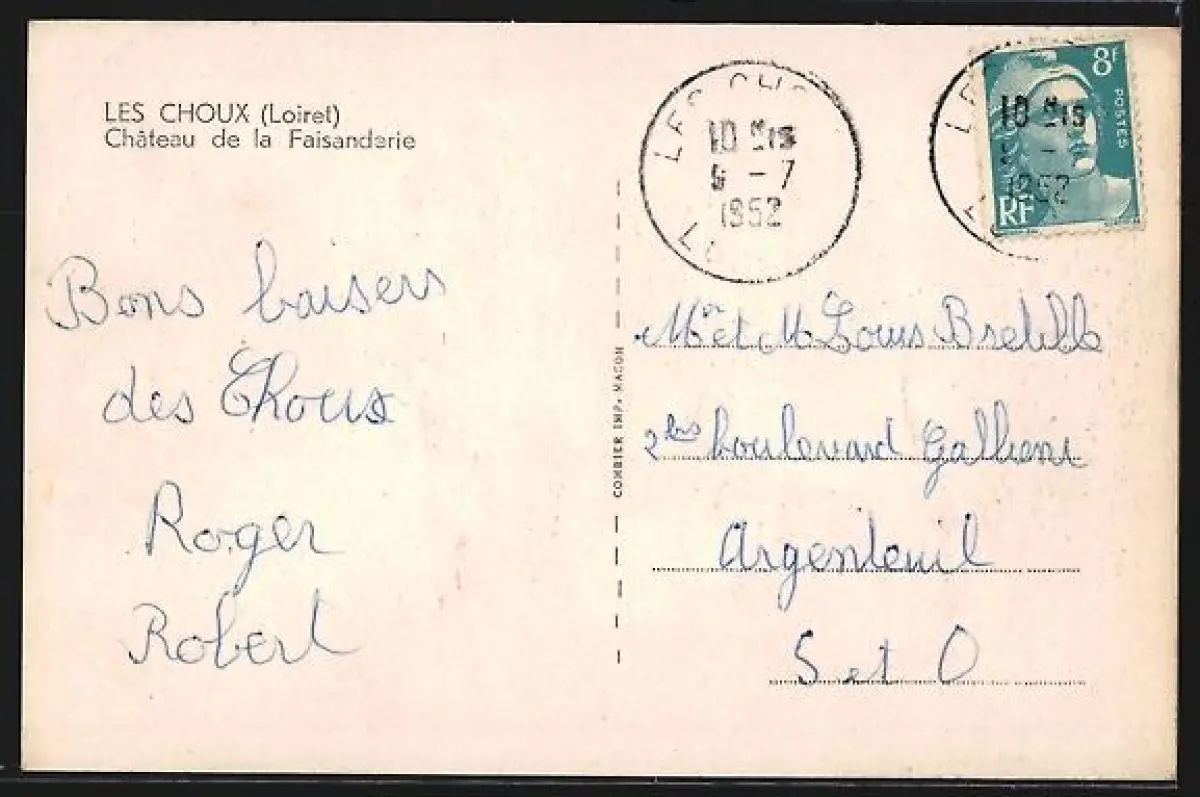 LES CHOUX (Loiret)
Château de la Faisanderie
Bons baisers
des Choux
Roger
Robert
COMBIER IMP. MACON
LES CHO
10 H 15
5 - 7
1952
8f
POSTES
RF
LE
10 H 15
1952
Mr et M Louis
2 bis boulevard Gallieni
Argenteuil
S et O